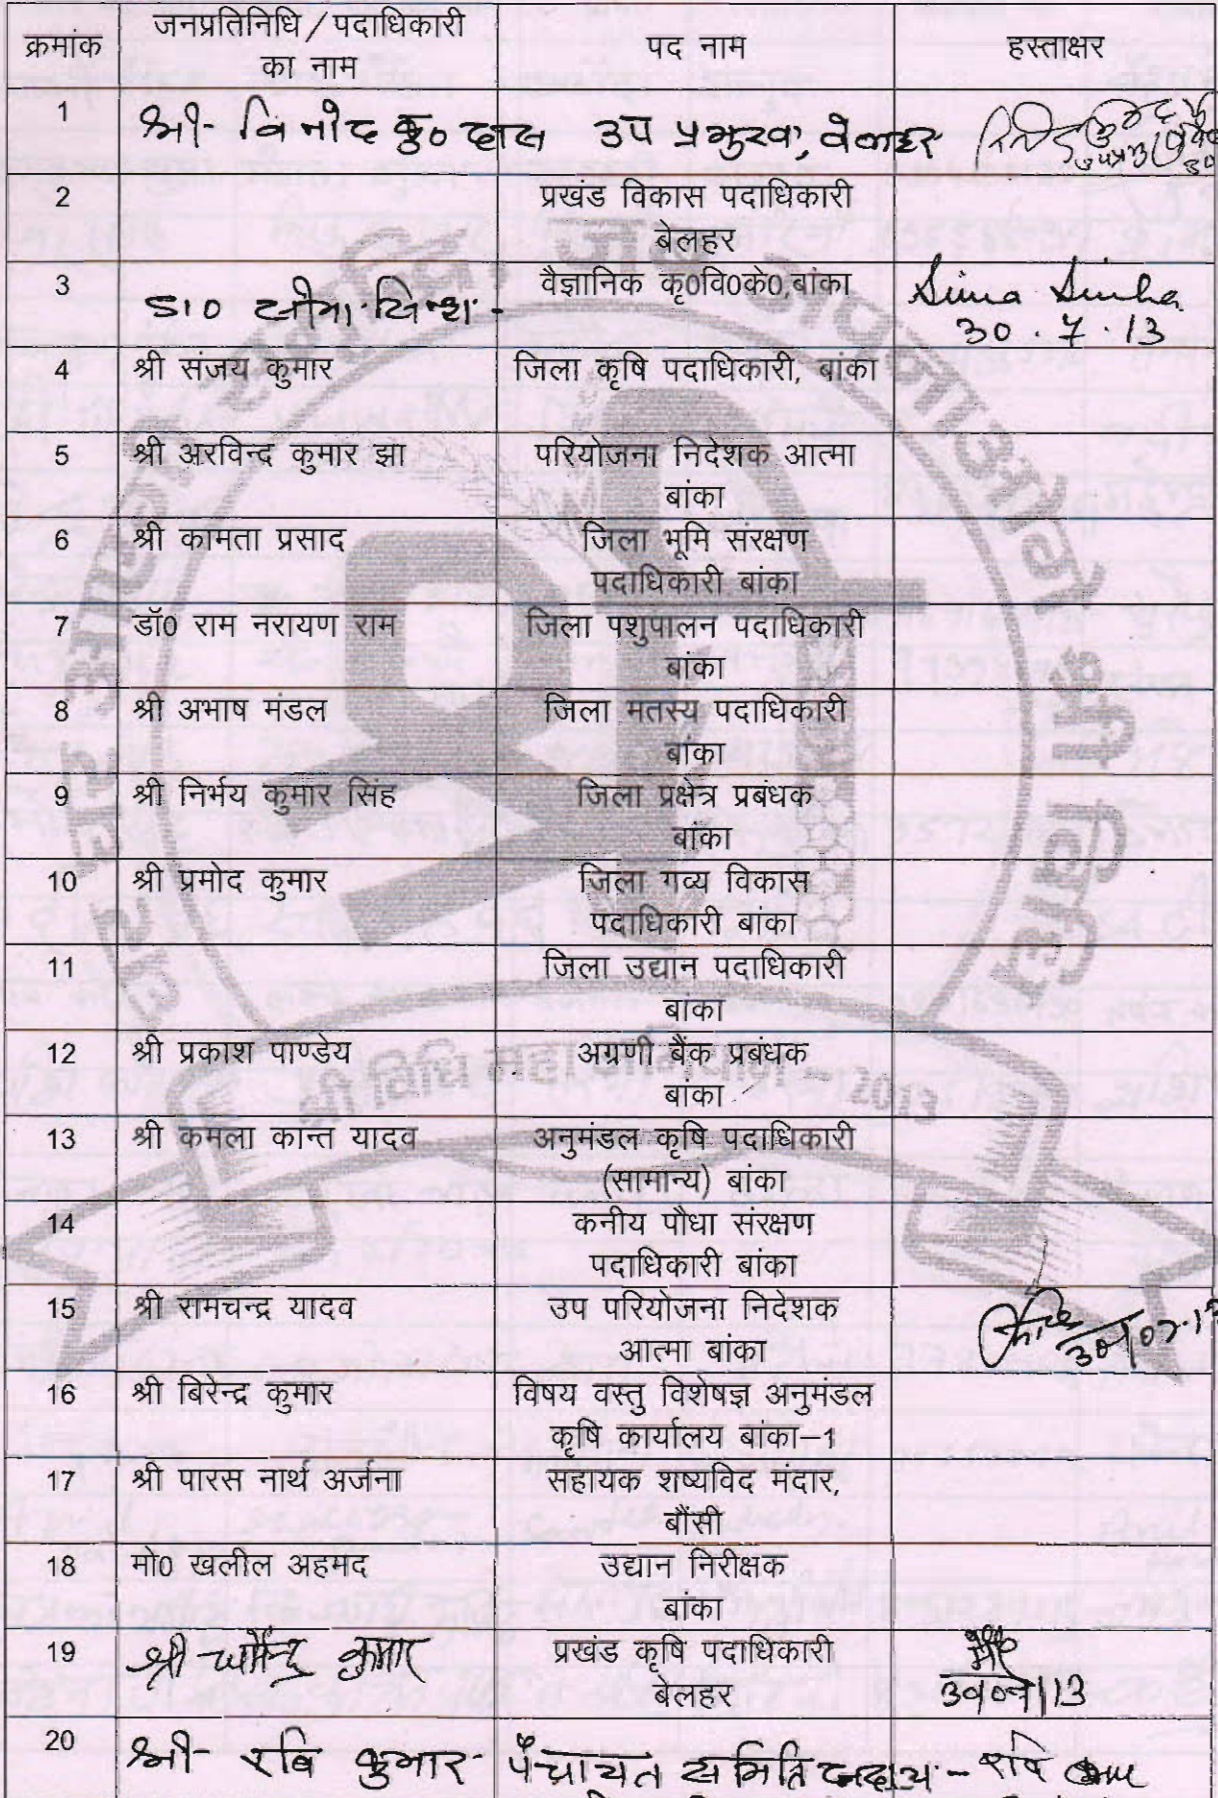 क्रमांक जनप्रतिनिधि / पदाधिकारी का नाम पद नाम हस्ताक्षर
1 श्री- विनोद कु० दास उप प्रमुख, बेलहर
2 प्रखंड विकास पदाधिकारी
बेलहर
3 डा० सीमा सिन्हा वैज्ञानिक कृ0वि0के0,बांका Sima Sinha
30.7.13
4 श्री संजय कुमार जिला कृषि पदाधिकारी, बांका
5 श्री अरविन्द कुमार झा परियोजना निदेशक आत्मा
बांका
6 श्री कामता प्रसाद जिला भूमि संरक्षण
पदाधिकारी बांका
7 डॉ0 राम नरायण राम जिला पशुपालन पदाधिकारी
बांका
8 श्री अभाष मंडल जिला मतस्य पदाधिकारी
बांका
9 श्री निर्भय कुमार सिंह जिला प्रक्षेत्र प्रबंधक
बांका
10 श्री प्रमोद कुमार जिला गव्य विकास
पदाधिकारी बांका
11 जिला उद्यान पदाधिकारी
बांका
12 श्री प्रकाश पाण्डेय अग्रणी बैंक प्रबंधक
बांका
13 श्री कमला कान्त यादव अनुमंडल कृषि पदाधिकारी
(सामान्य) बांका
14 कनीय पौधा संरक्षण
पदाधिकारी बांका
15 श्री रामचन्द्र यादव उप परियोजना निदेशक
आत्मा बांका
16 श्री बिरेन्द्र कुमार विषय वस्तु विशेषज्ञ अनुमंडल
कृषि कार्यालय बांका–1
17 श्री पारस नार्थ अर्जना सहायक शष्यविद मंदार,
बौंसी
18 मो0 खलील अहमद उद्यान निरीक्षक
बांका
19 श्री धर्मेन्द्र कुमार प्रखंड कृषि पदाधिकारी
बेलहर
20 श्री- रवि कुमार- पंचायत समिति सदस्य - रवि कुमार
अपनाओगे श्री विधि
श्री विधि महा अभियान - 2013